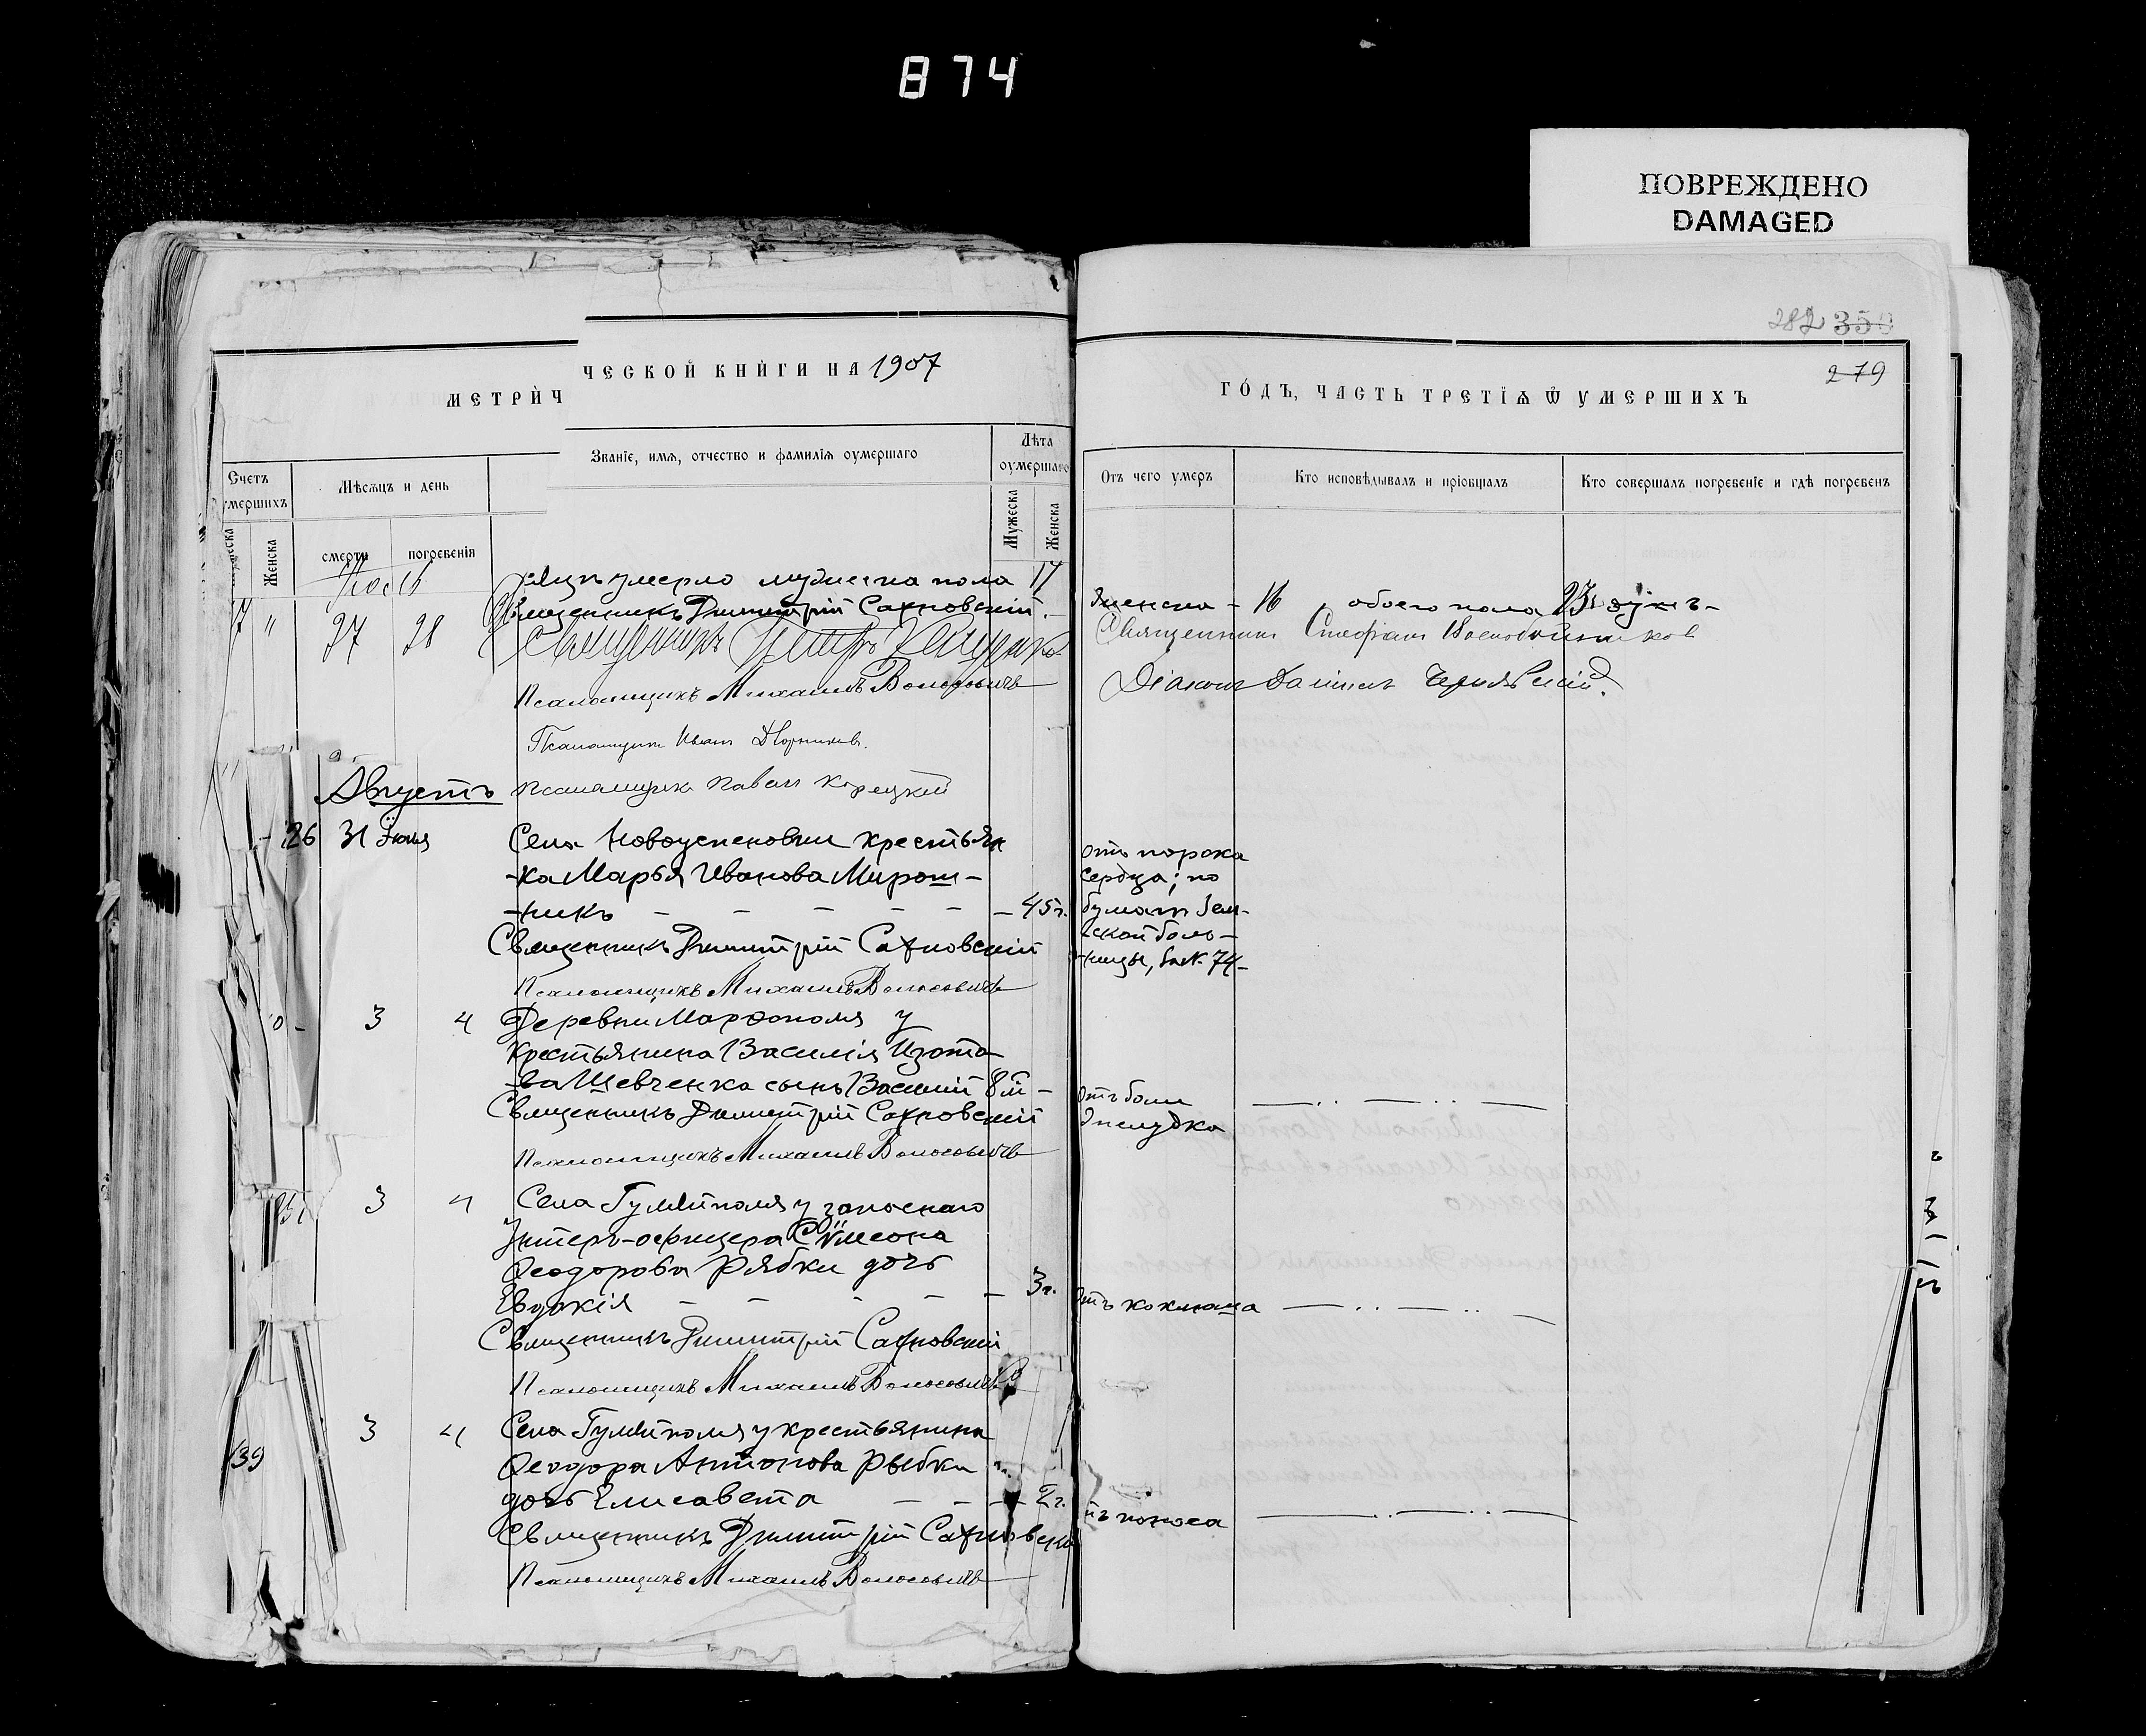 874
ПОВРЕЖДЕНО
DAMAGED
282 350
279
МЕТРИЧ
ЧЕСКОЙ КНИГИ НА 1907
ГОДЪ, ЧАСТЬ ТРЕТІѦ Ѿ УМЕРШИХЪ
Счетъ
умершихъ
Мѣсѧцъ и день
Званіе, имѧ, отчество и фамиліѧ оумершаго
Лѣта
оумершаго
Отъ чего умеръ
Кто исповѣдывалъ и пріобщалъ
Кто совершалъ погребеніе и гдѣ погребенъ
Женска
смерти
погребенія
Мужеска
Женска
умерло мужеска пола 17
женска - 16, обоего пола
17 " 27 28 Священникъ Димитрій Сахновскій
Священникъ Стефанъ
Псаломщикъ Михаилъ Волосовичъ
Діаконъ Даніилъ
Псаломщикъ Иванъ Дворников.
Августъ
псаломщикъ Павелъ Корецкій
26 31 Іюля Села Новоуспеновки крестьян
-ка Марья Иванова Мирош-
-никъ - - - - - 45 г.
отъ порока
сердца; по
бумагѣ Зем-
ской боль-
ницы, за № 74-
Священникъ Димитрій Сахновскій
Псаломщикъ Михаилъ Волосовичъ
3 4 Деревни Марфополя у
крестьянина Василія Изото-
-ва Шевченка сынъ Василій 8 м -
отъ боли
желудка
Священникъ Димитрій Сахновскій
Псаломщикъ Михаилъ Волосовичъ
3 4 Села Гуляйполя у запаснаго
Унтеръ-офицера Сѵмеона
Ѳеодорова Рябки дочь
Евдокія - - - - - 3 г.
отъ коклюша
Священникъ Димитрій Сахновскій
Псаломщикъ Михаилъ Волосовичъ
139 3 4 Села Гуляйполя у крестьянина
Ѳеодора Антонова Рыбки
дочь Елисавета - - - 2 г.
отъ поноса
Священникъ Димитрій Сахновскій
Псаломщикъ Михаилъ Волосовичъ